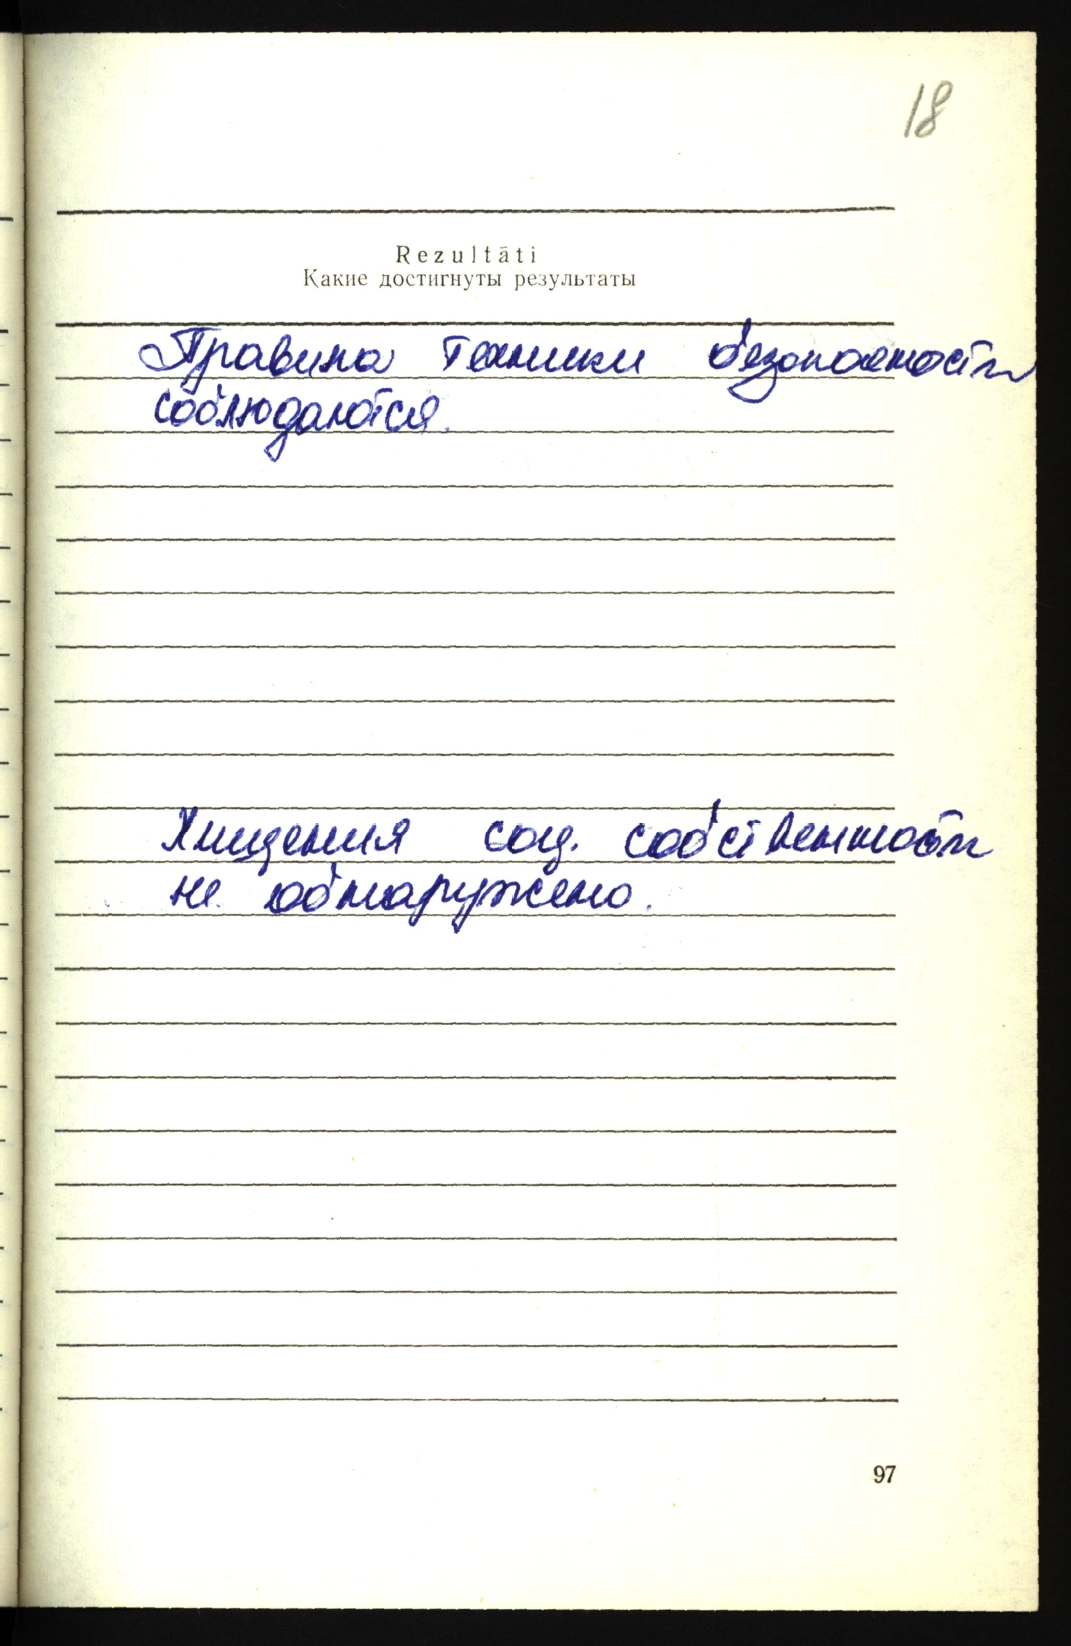 18
Rezultāti
Какие достигнуты результаты
Правила техники безопасности
соблюдаются.
Хищения соц. собственности
не обнаружено.
97